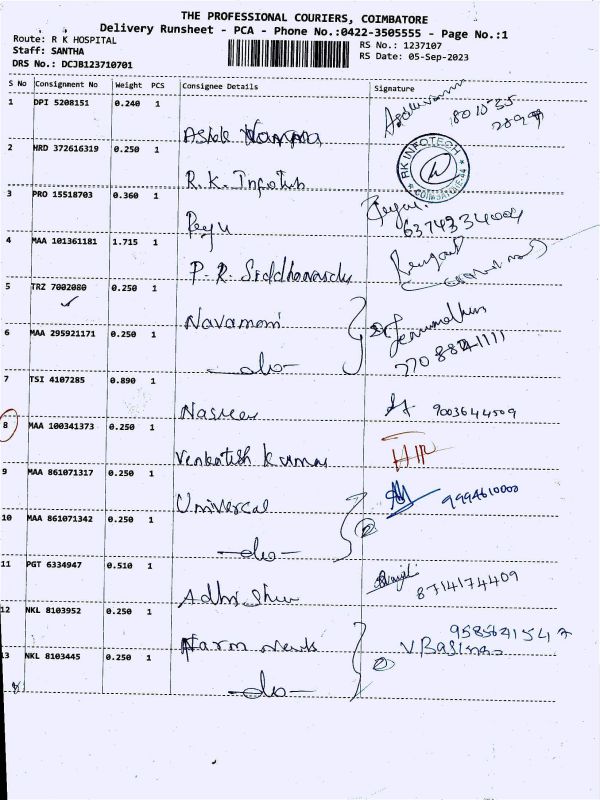 THE PROFESSIONAL COURIERS, COIMBATORE
Delivery Runsheet - PCA - Phone No.:0422-3505555 - Page No.:1
Route: R K HOSPITAL
Staff: SANTHA
DRS No.: DCJB123710701
RS No.: 1237107
RS Date: 05-Sep-2023
S No Consignment No Weight PCS Consignee Details Signature
1 DPI 5208151 0.240 1
2 HRD 372616319 0.250 1
R.K. Infotech
RK INFOTECH COIMBATORE
3 PRO 15518703 0.360 1
Regu 6374334004
4 MAA 101361181 1.715 1
P.R. Siddhanasdu
5 TRZ 7002080 0.250 1
Navamoni
6 MAA 295921171 0.250 1
-do-
7 TSI 4107285 0.890 1
Nasreen 9003644509
8 MAA 100341373 0.250 1
Venkatesh Kumar
9 MAA 861071317 0.250 1
Universal 9994610000
10 MAA 861071342 0.250 1
-do- 2
11 PGT 6334947 0.510 1
8714174409
12 NKL 8103952 0.250 1
13 NKL 8103445 0.250 1
-do- 2